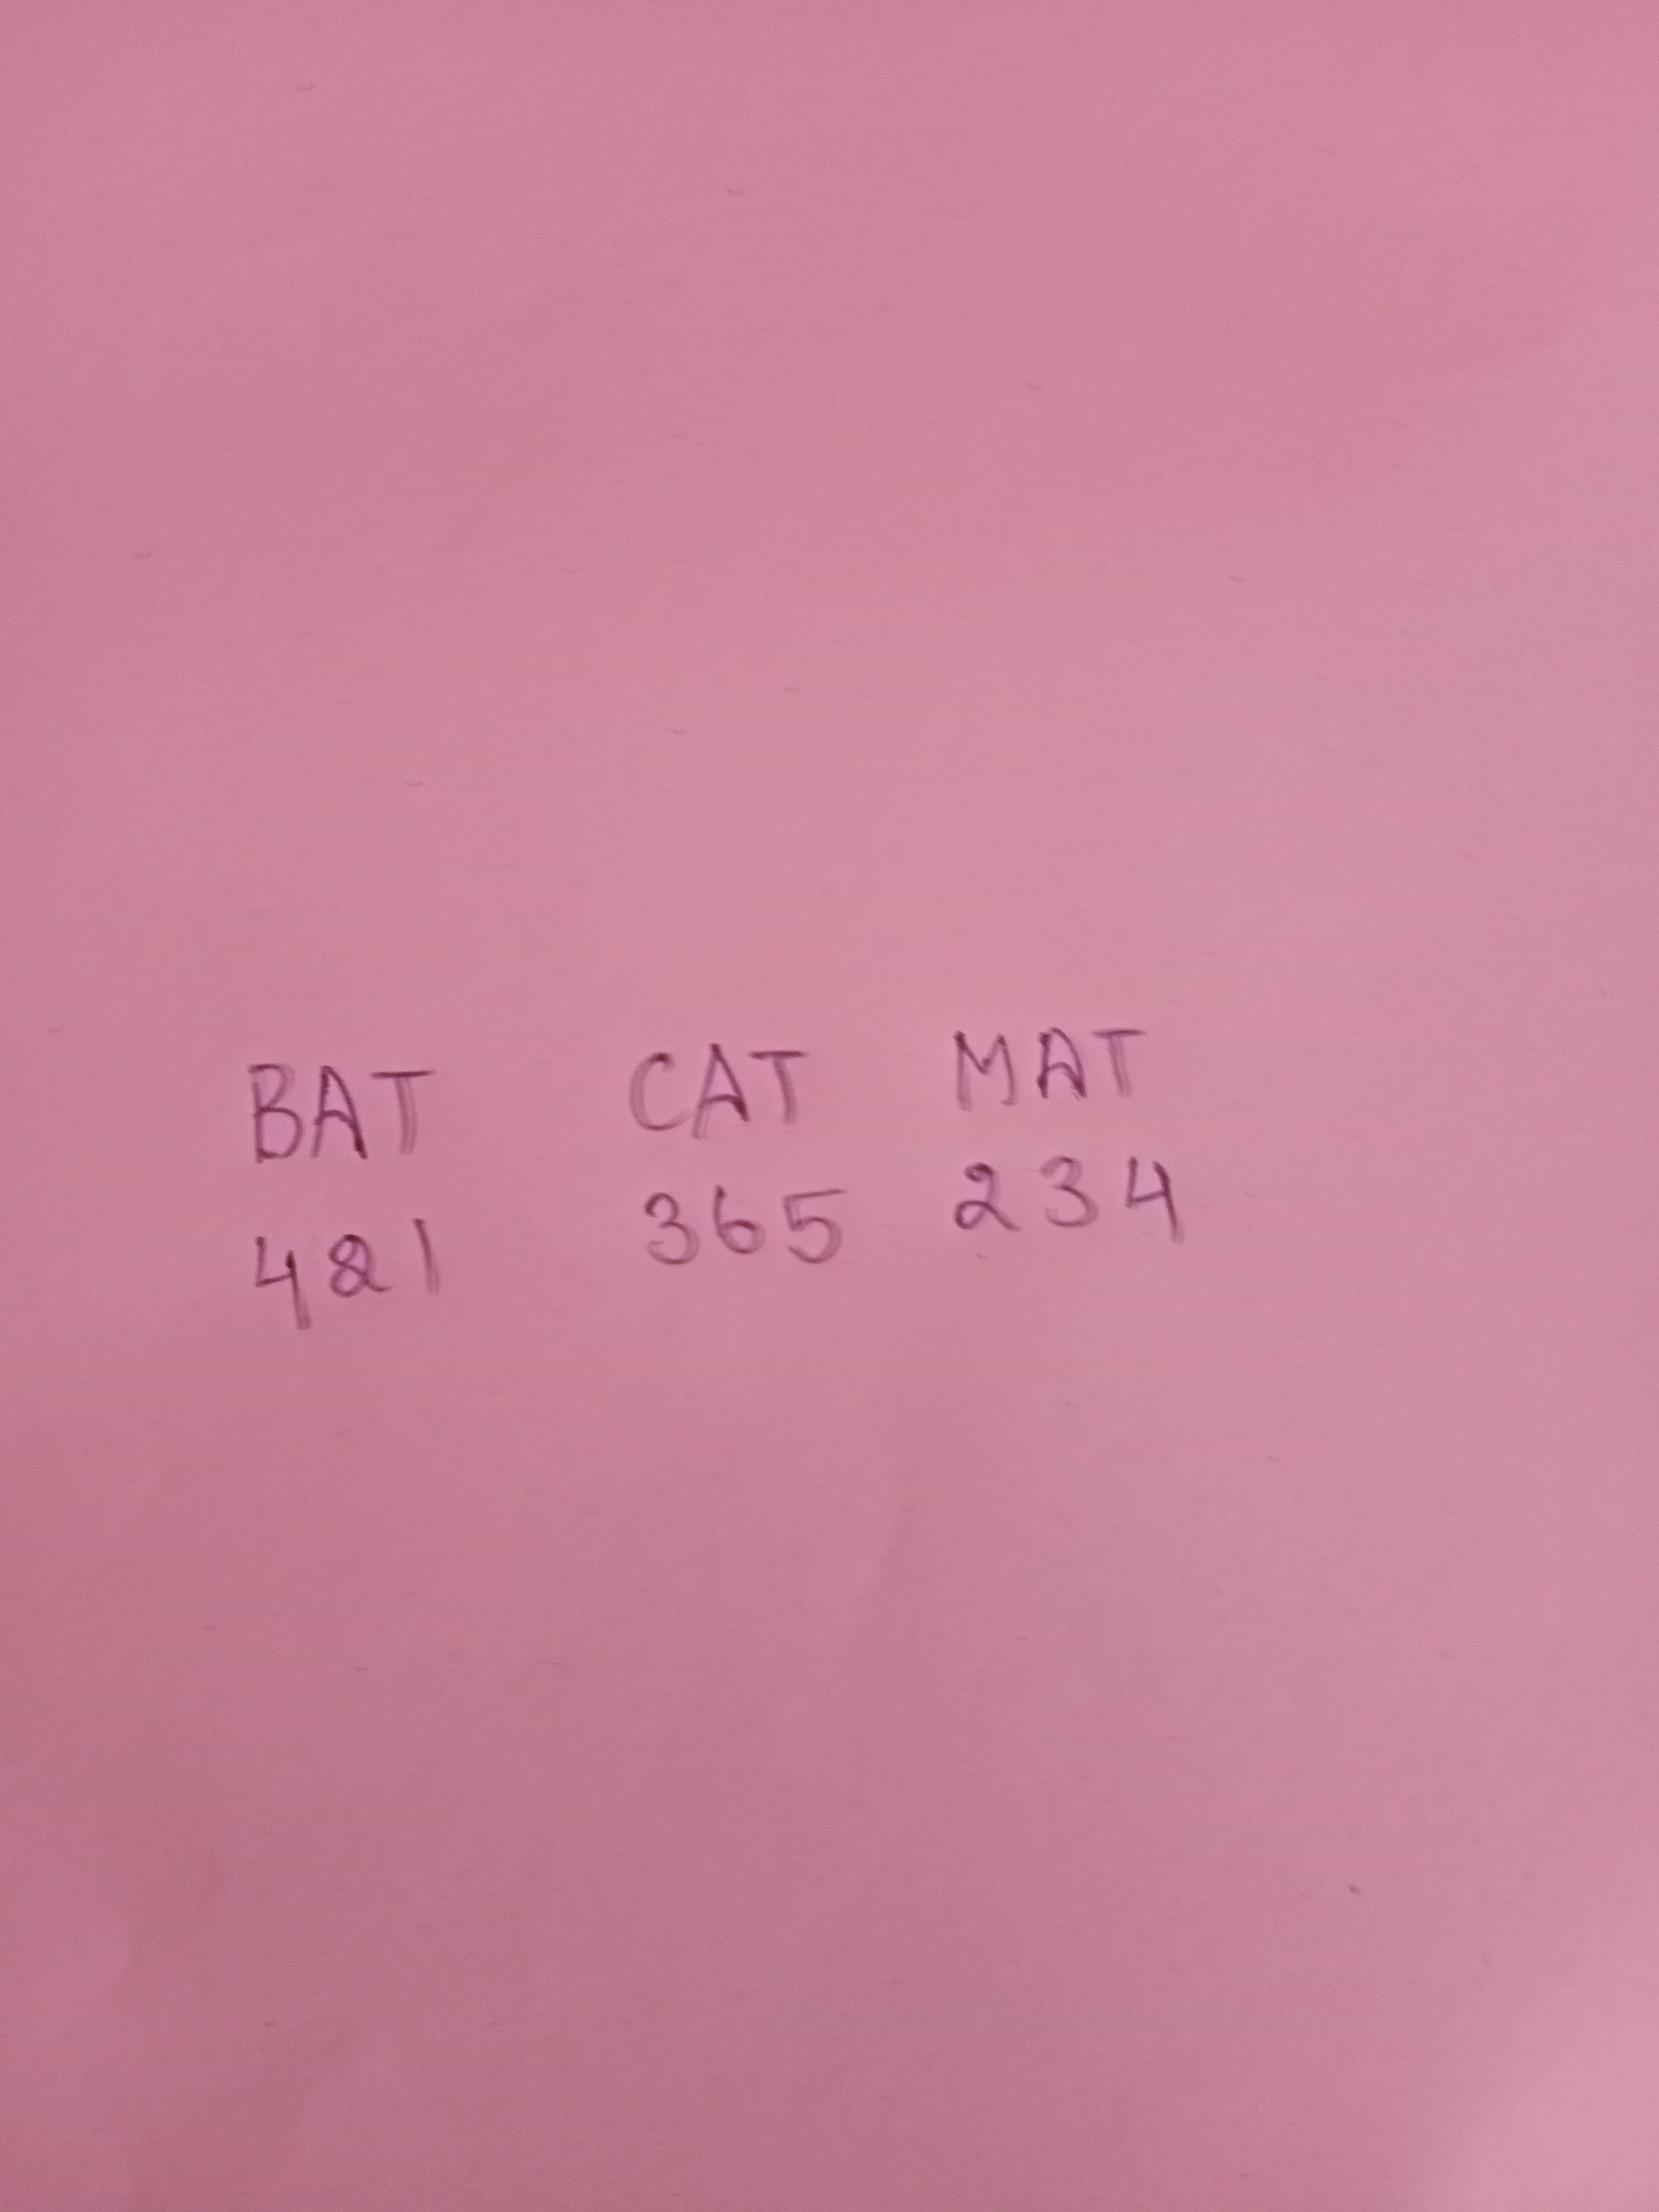 BAT CAT MAT
421 365 234